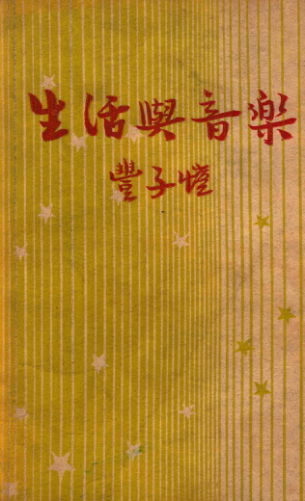 生活與音楽
豐子愷